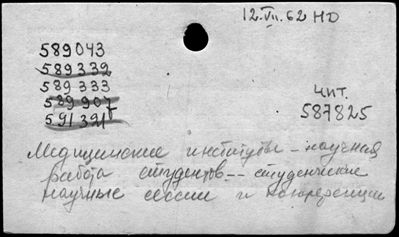 12.VII.62 НО
589043
589332
589333
589907
591391
Чит.
587825
Медицинские институты - научная
работа студентов -- студенческие
научные сессии и конференции